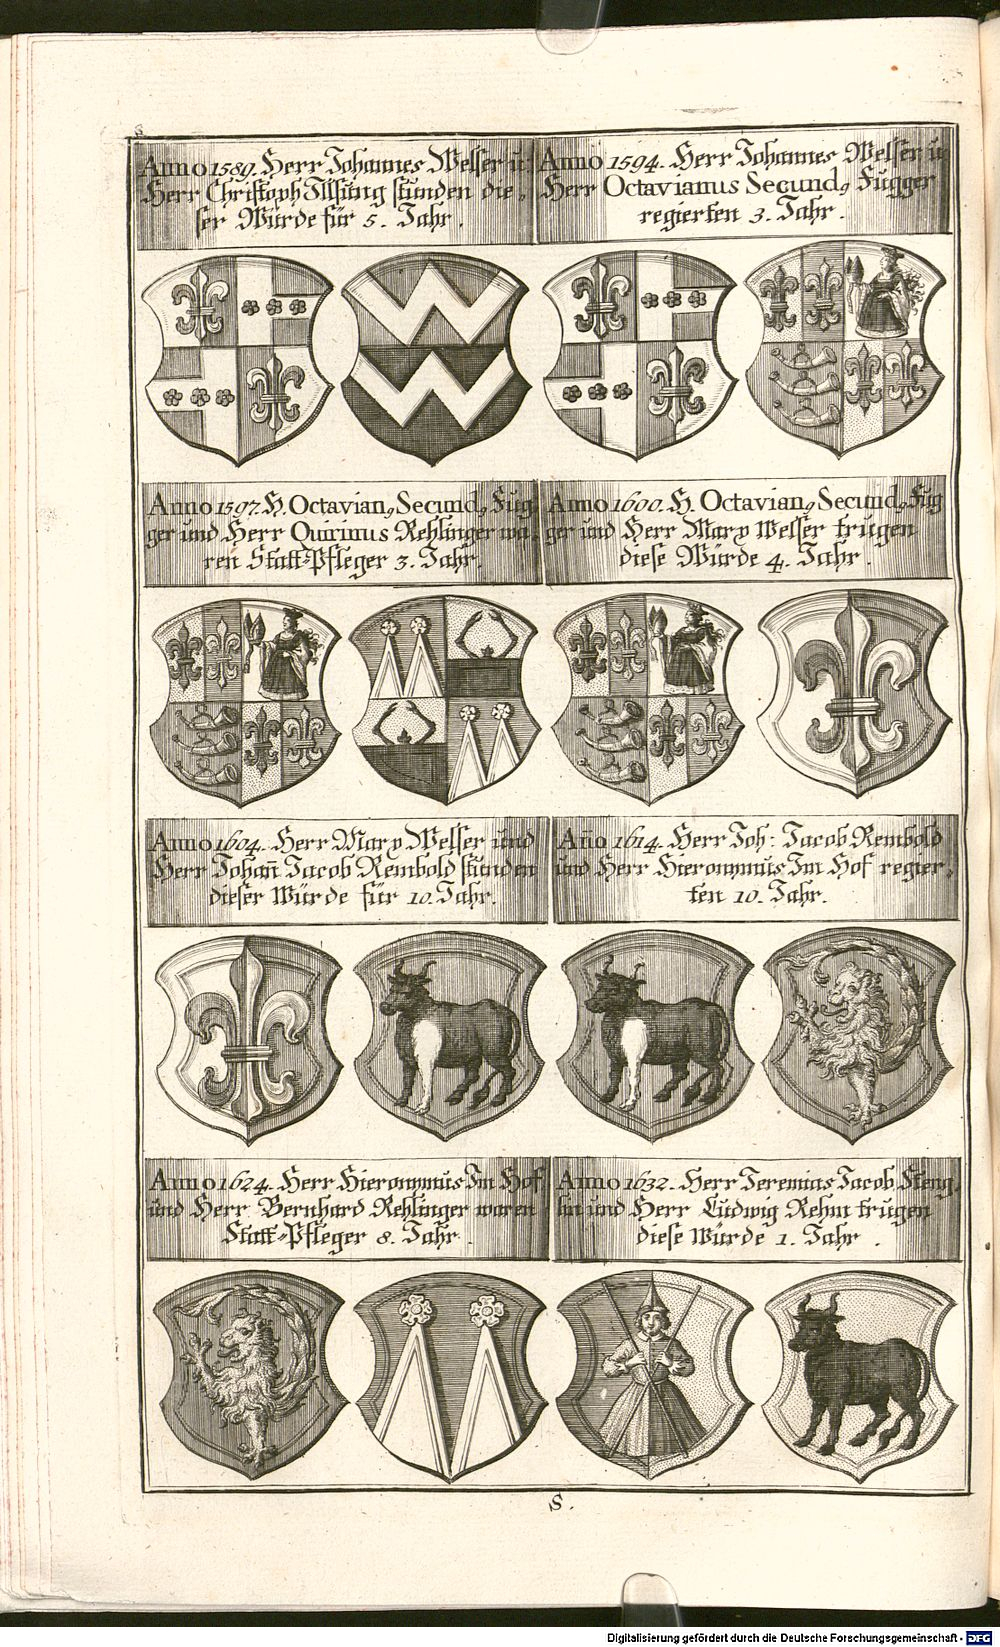 S
Anno 1589. Herr Johannes Welser u:
Herr Christoph Ilsung stunden die-
ser Würde für 5. Jahr.
Anno 1594. Herr Johannes Welser u:
Herr Octavianus Secundg Fugger
regierten 3. Jahr.
Anno 1597. H. Octaviang Secundg Fug-
ger und Herr Quirinus Rehlinger wa-
ren Statt-Pfleger 3. Jahr.
Anno 1600. H. Octaviang Secundg Fug
ger und Herr Marx Welser trugen
diese Würde 4. Jahr.
Anno 1604. Herr Marx Welser und
Herr Johañ Jacob Rembold stunden
dieser Würde für 10. Jahr.
Año 1614. Herr Joh: Jacob Rembold
und Herr Hieronymus Im Hof regier-
ten 10. Jahr.
Anno 1624. Herr Hieronymus Im Hof
und Herr Bernhard Rehlinger waren
Statt-Pfleger 8. Jahr.
Anno 1632. Herr Jeremias Jacob Steng-
lin und Herr Ludwig Rehm trugen
diese Würde 1. Jahr.
S.
Digitalisierung gefördert durch die Deutsche Forschungsgemeinschaft - DFG